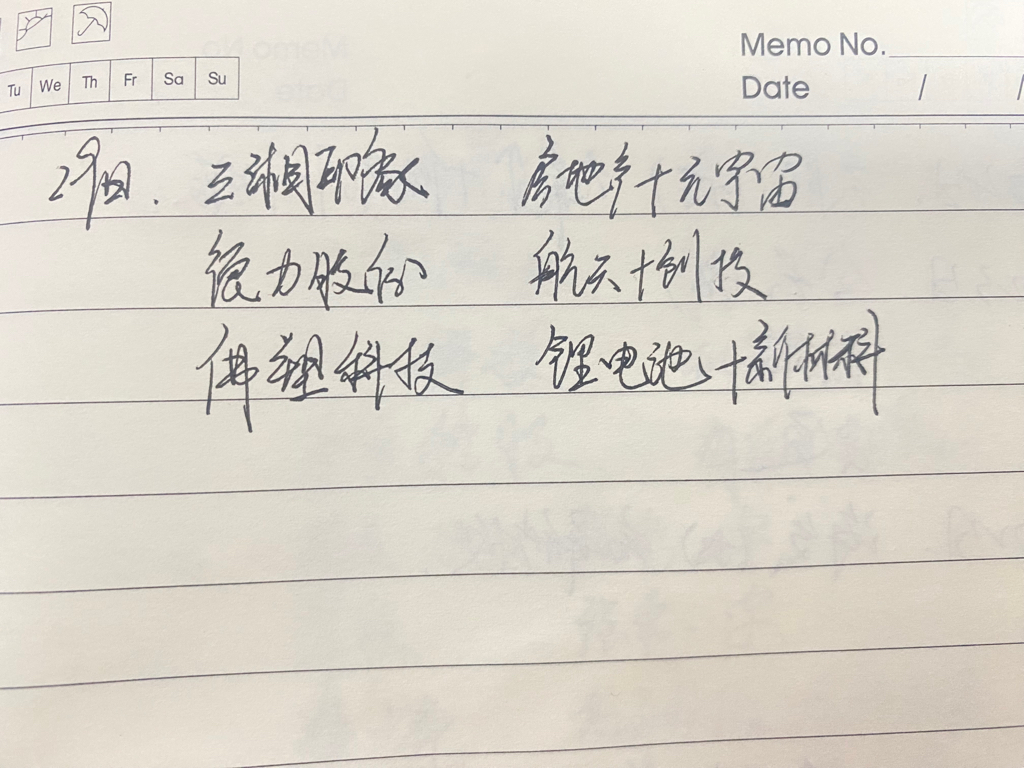 Memo No.
Tu We Th Fr Sa Su
Date / /
29日. 三湘印象 房地产+元宇宙
德力股份 航天+创投
佛塑科技 锂电池+新材料